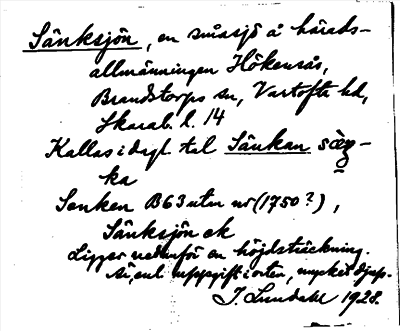 Sänksjön, en småsjö å härads-
allmänningen Hökensås,
Brandstorps sn, Vartofta hd,
Skarab. l. 14
Kallas i dagl. tal Sänkan sàŋ-
ka
Senken B63utn nr (1750?),
Sänksjön ek
Ligger nedanför en höjdsträckning.
Är, enl. uppgift i orten, mycket djup.
J. Lundahl 1928.